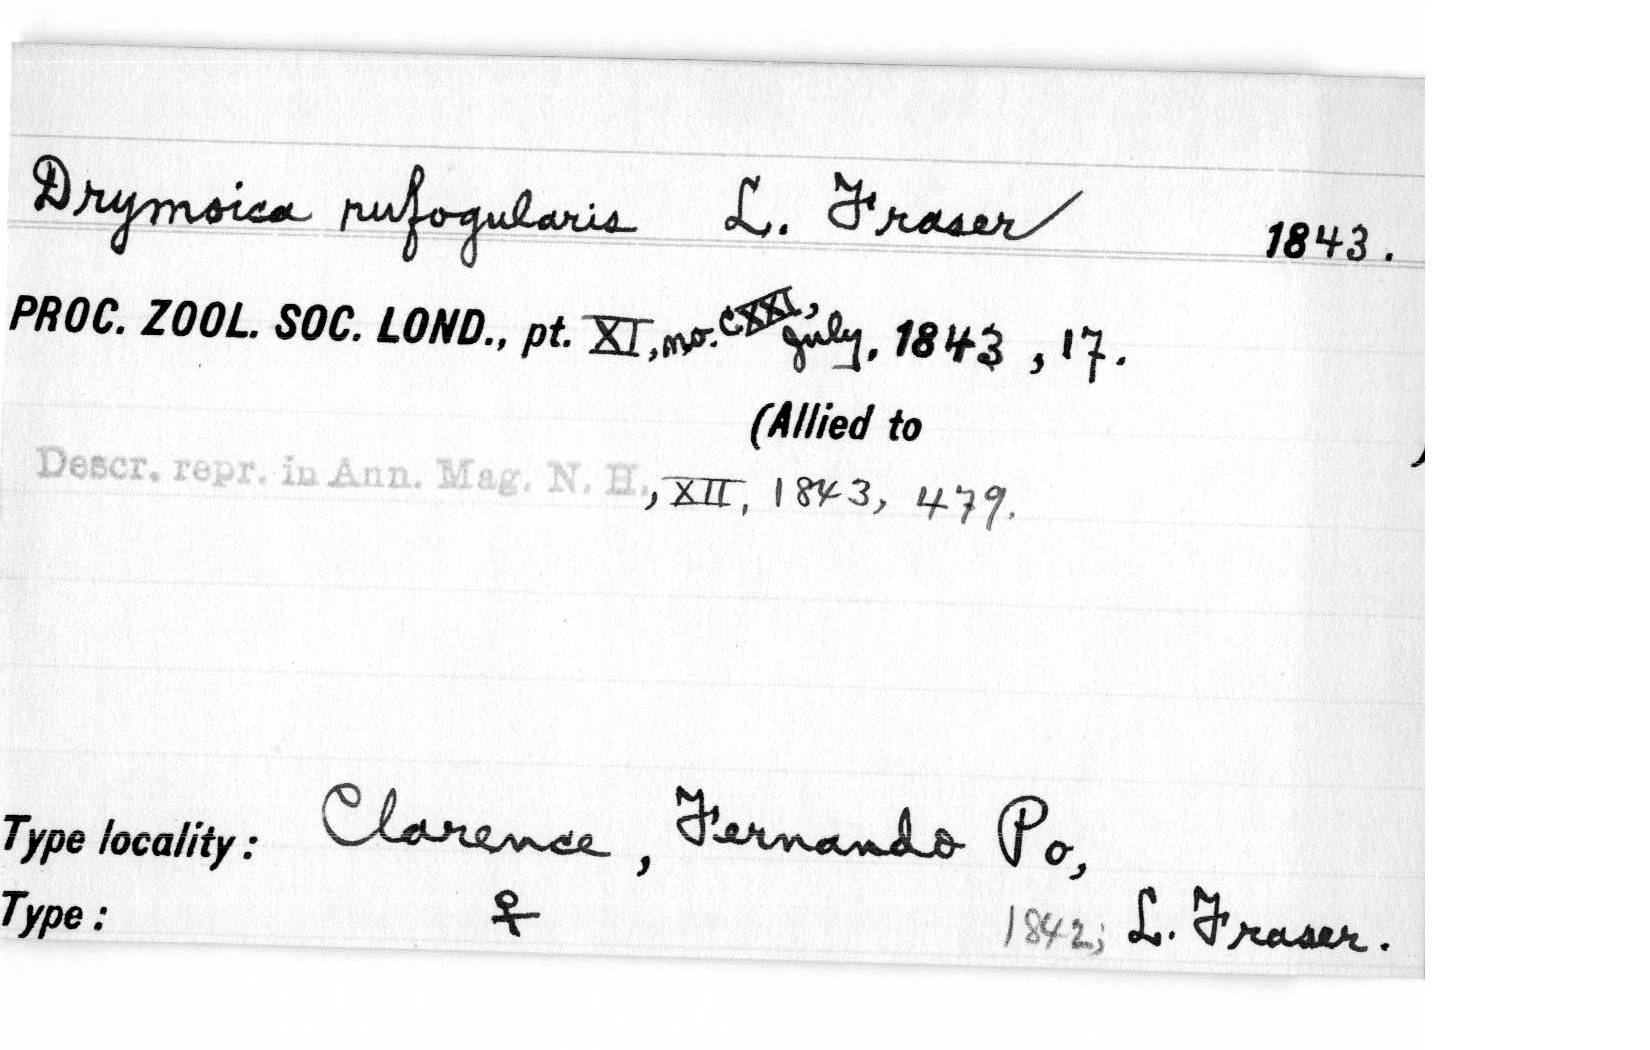 Drymoica rufogularis L. Fraser 1843.
PROC. ZOOL. SOC. LOND., pt. XI, no. CXXI, July, 1843, 17.
(Allied to )
Descr. repr. in Ann. Mag. N. H., XII, 1843, 479.
Type locality: Clarence, Fernando Po,
Type: ♀ 1842; L. Fraser.